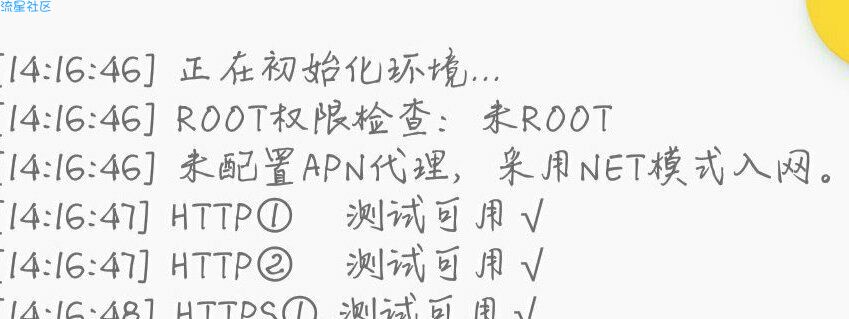 流星社区
[14:16:46] 正在初始化环境...
[14:16:46] ROOT权限检查：未ROOT
[14:16:46] 未配置APN代理，采用NET模式入网。
[14:16:47] HTTP① 测试可用√
[14:16:47] HTTP② 测试可用√
[14:16:48] HTTPS① 测试可用√